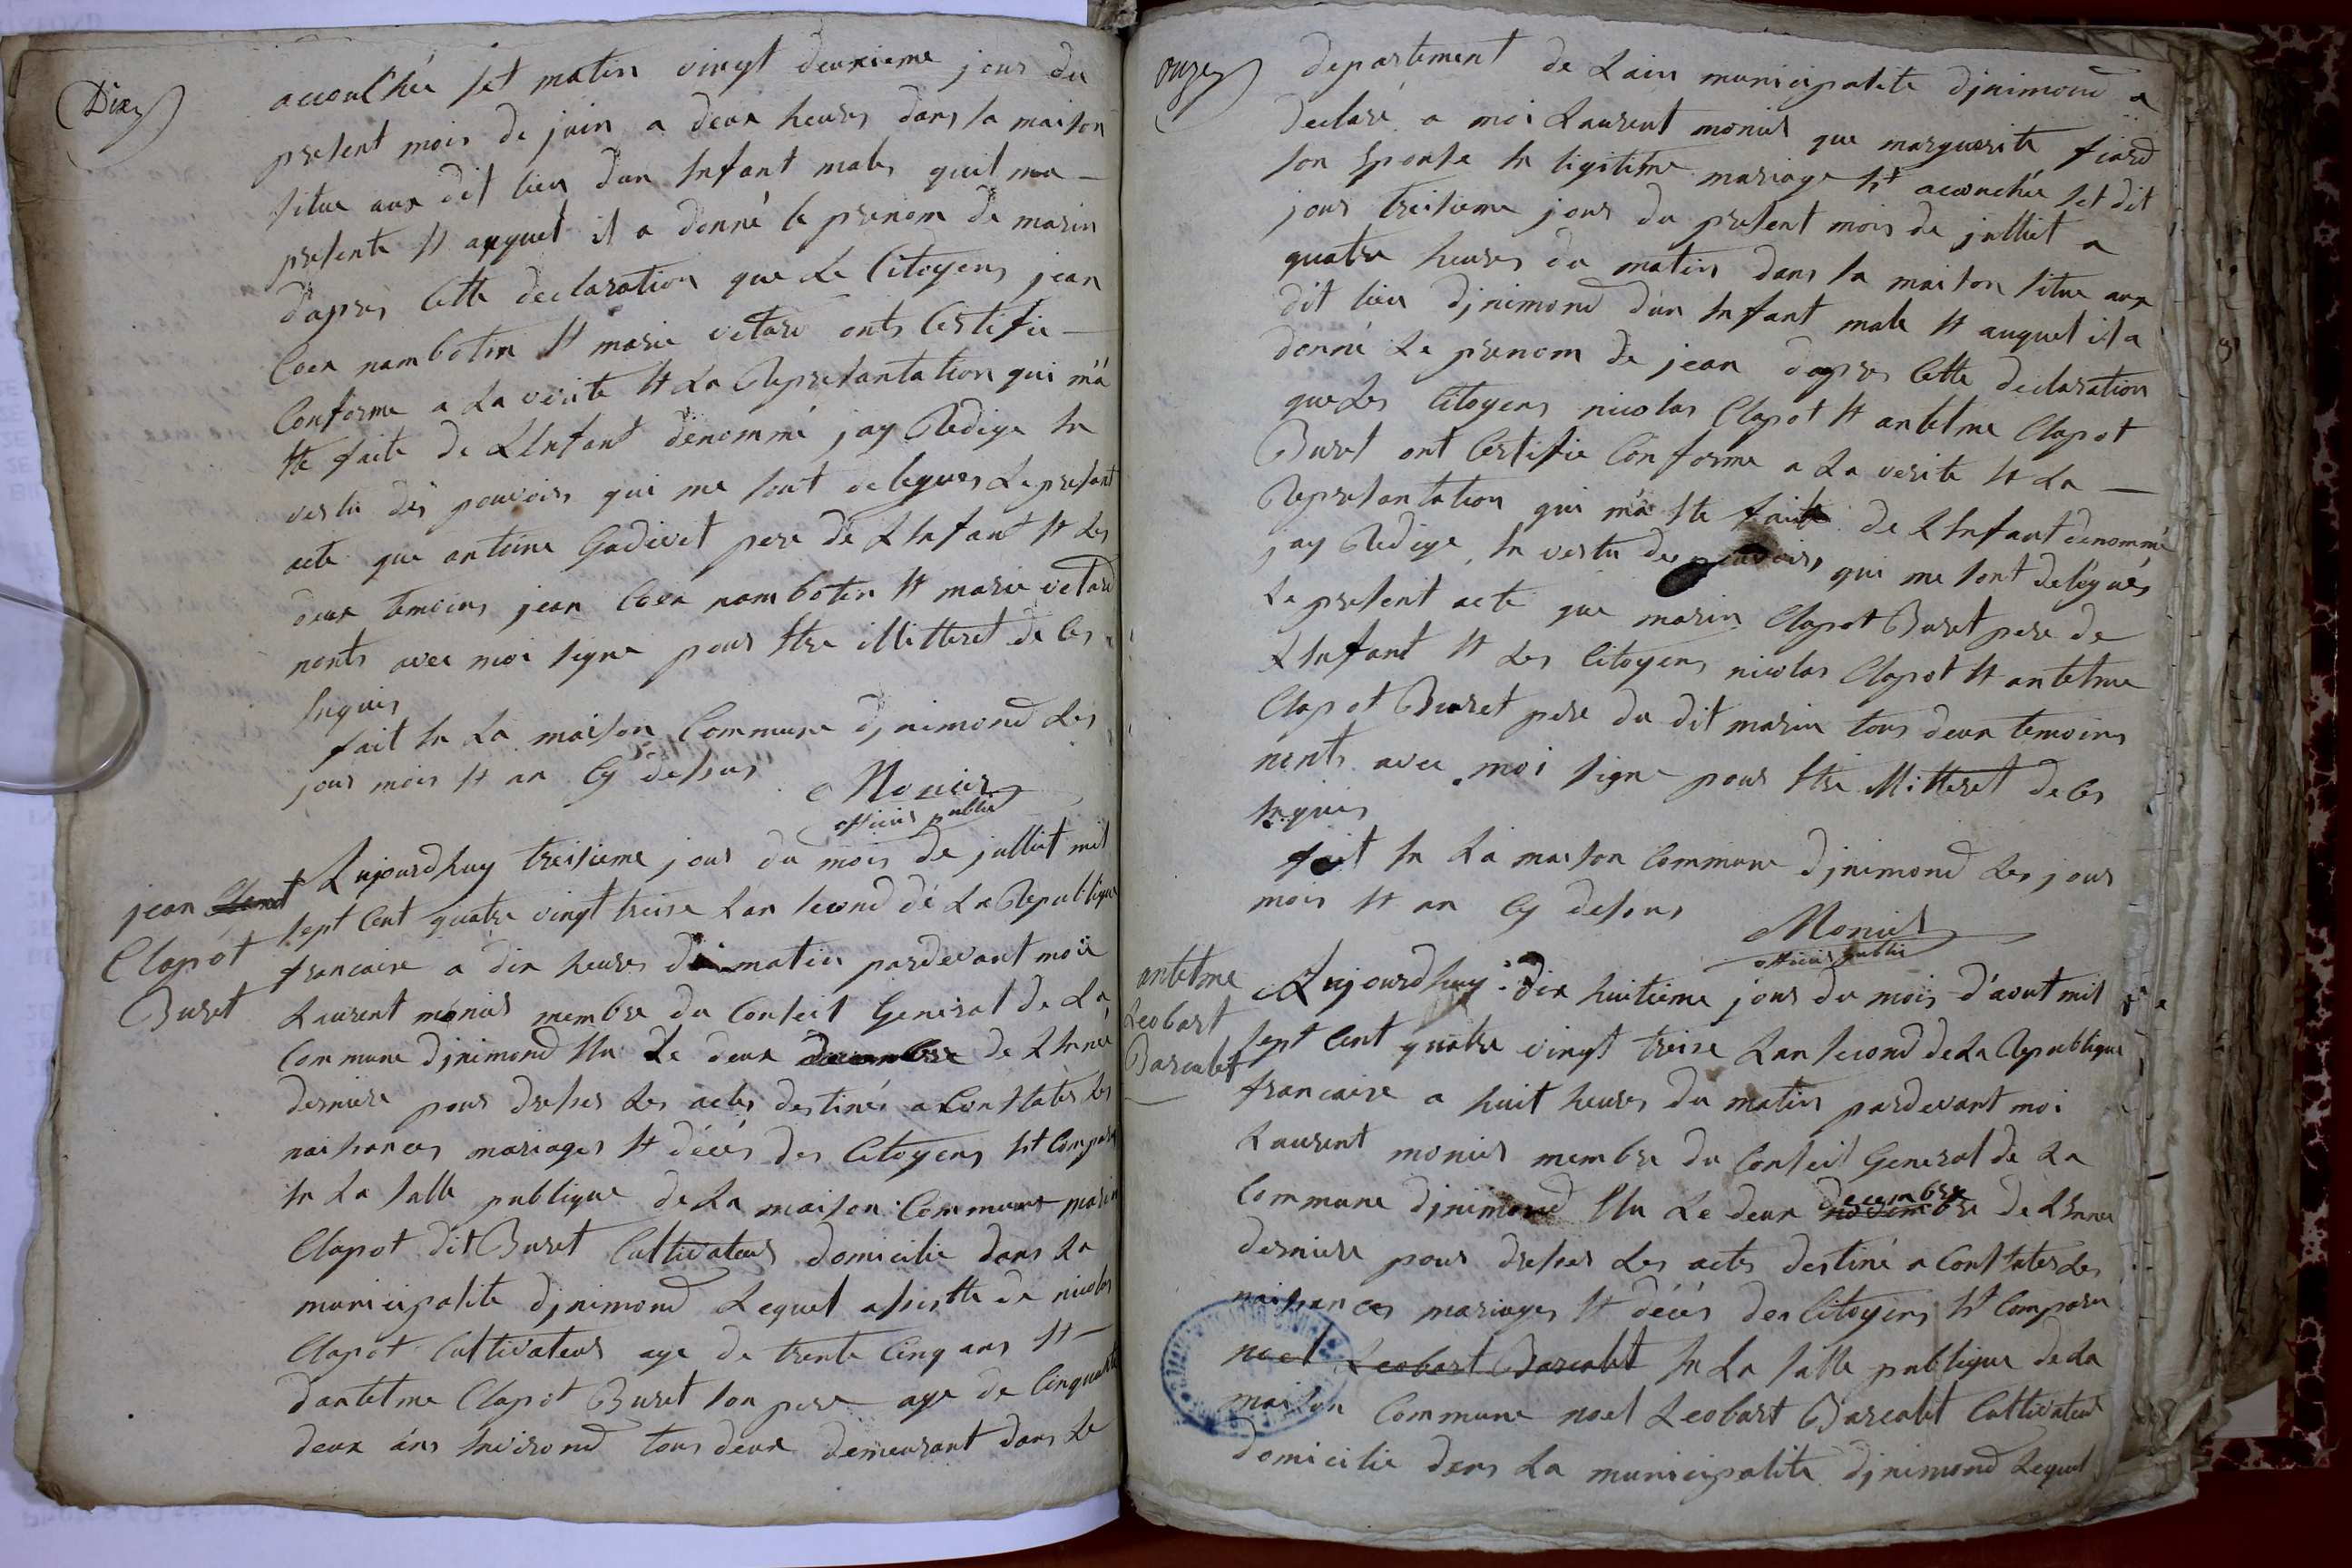 Dix
accouchée set matin vingt deuxieme jour du
present mois de juin a deux heures dans sa maison
situe aux dit lieu dun Enfant male quil ma
presente Et auquel il a donné le prenom de marin
dapres Cette declaration que Le Citoyens jean
Coex nambotin Et marie vetard onts Certifie
Conforme a La verite Et La Represantation qui m'a
Ete faite de LEnfant dénommé jay Redige En
vertu dés pouvoirs qui me sont delegues Le present
acte que antoine Godivet pere de LEnfant Et Les
deux temoins jean Coex nambotin Et marie vetard
nonts avec moi signe pour Etre illitteret de Ces
Enquis
fait En La maison Commune djnimond Les
jour mois Et an Cy dessus
Monier
officier public
jean
Clapot
Buret
Aujourdhuy treisieme jour du mois de julliet mil
sept Cent quatre vingt treise Lan second dé La Republique
francaise a dix heures du matin pardevant moi
Laurent monier membre du Conseil General de La
Commune djnimond Elu Le deux decembre de LEnneé
derniere pour dresser Les actes destinés a Constatér Les
naissances mariages Et décés des Citoyens Est Comparu
En La salle publique de La maison Commune marin
Clapot dit Buret Cultivateur domicilie dans La
municipalite djnimond Lequel assistte de nicolas
Clapot Cultivateur age de trente Cinq ans Et
dantelme Clapot Buret son pere age de Cinquante
deux ans Environd tous deux demeurant dans Le
onze
departement de Lain municipalite djnimond a
declaré a moi Laurent monier que marguerite fiard
son Epouse En ligitime mariage Est acouchée set dit
jour treisieme jour du present mois de julliet a
quatre heures du matin dans sa maison situe aux
dit lieu djnimond dun Enfant male Et auquel il a
donné Le prenom de jean dapres Cette declaration
que Les Citoyens nicolas Clapot Et antelme Clapot
Buret ont Certifie Conforme a La verite Et La
Represantation qui m'a Ete faite de LEnfant denommé
jay Redige En vertu des pouvoirs qui me sont delégués
Le present acte que marin Clapot Buret pere de
LEnfant Et Les Citoyens nicolas Clapot Et antelme
Clapot Buret pere du dit marin tous deux temoins
nonts avec moi signe pour Etre illitteret de Ces
Enquis
fait En La maison Commune djnimond Les jour
mois Et an Cy dessus
Monier
officier public
antelme
Leobart
Barcalet
Aujourdhuy dix huitieme jour du mois d'aout mil
sept Cent quatre vingt treise Lan second de La Republique
francaise a huit heures du matin pardevant moi
Laurent monier membre du Conseil General de La
Commune djnimond Elu Le deux novembre decembre de LEnnee
derniere pour dresser Les actes destiné a Constater Les
naissances mariages Et décés des Citoyens Est Comparu
noel Leobart Barcalet En La salle publique de La
maison Commune noel Leobart Barcalet Cultivateur
domicilie dans La municipalite djnimond Lequel